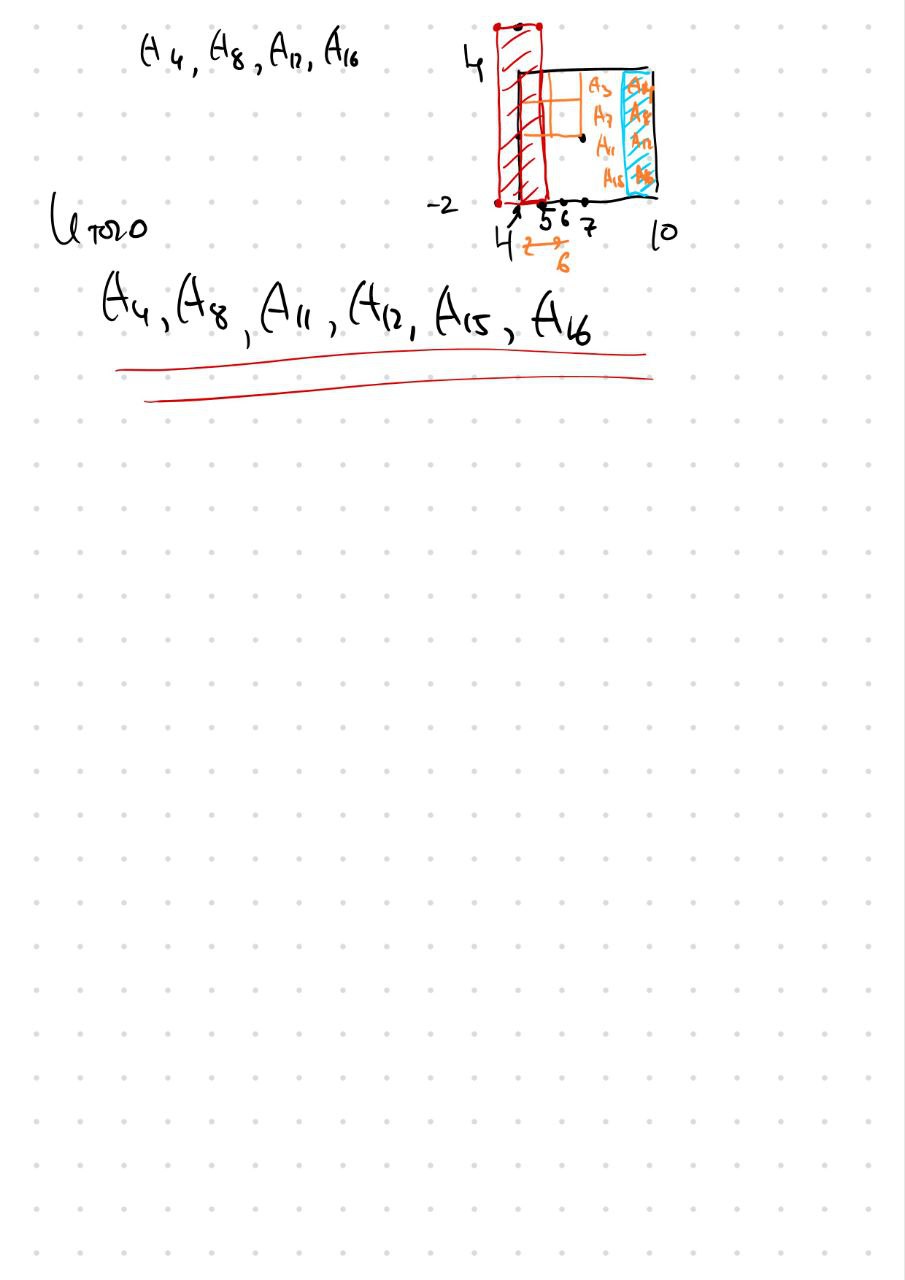 A₄, A₈, A₁₂, A₁₆
4
A₃ A₄
A₇ A₈
A₁₁ A₁₂
A₁₅ A₁₆
-2
4 5 6 7 10
2 → 6
Итого
A₄, A₈, A₁₁, A₁₂, A₁₅, A₁₆